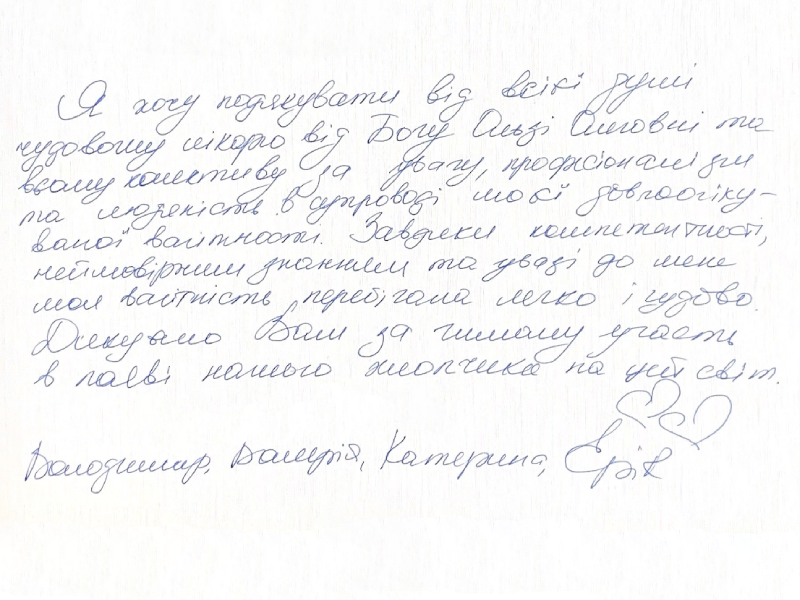 Я хочу подякувати від всієї душі
чудовому лікарю від Богу Ользі Олеговні та
всьому колективу за увагу, професіоналізм
та людяність в супроводі моєї довгоочіку-
ваної вагітності. Завдяки компетентності,
неймовірним знанням та увазі до мене
моя вагітність перебігала легко і чудово.
Дякуємо Вам за чималу участь
в появі нашого хлопчика на цей світ.
Володимир, Валерій, Катерина, Ерік